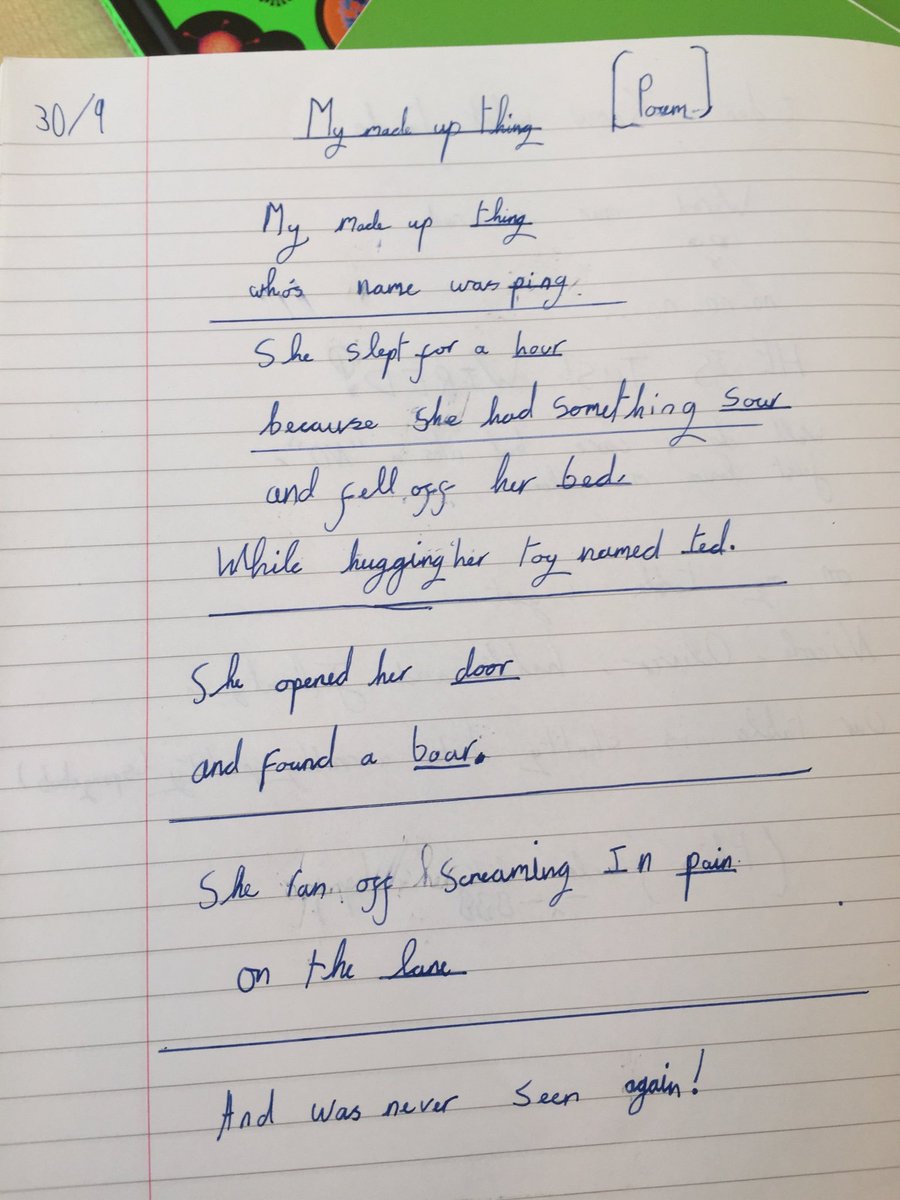 30/9
My made up thing [Poem]
My made up thing
who's name was ping.
She slept for a hour
because she had something sour
and fell off her bed.
While hugging her toy named ted.
She opened her door
and found a boar.
She ran off screaming In pain
on the lane
And was never seen again!